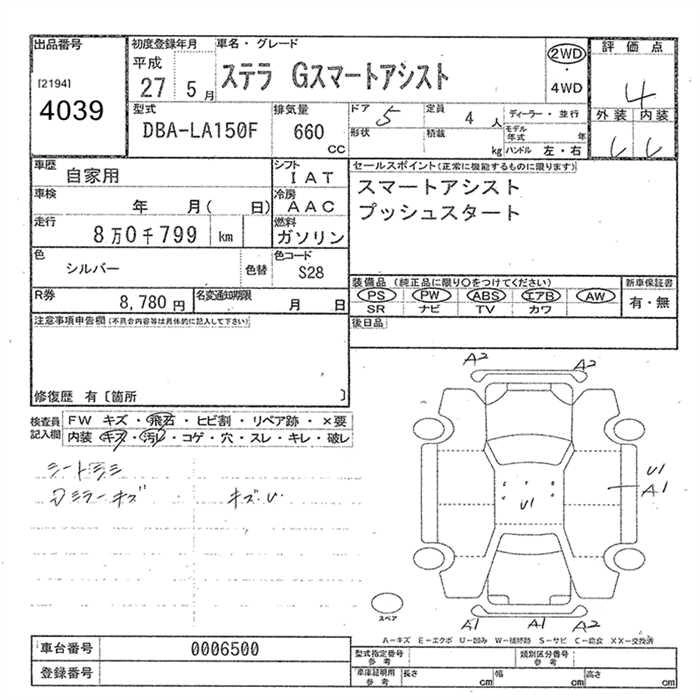 出品番号
[2194]
4039
初度登録年月
平成
27 5月
車名・グレード
ステラ Gスマートアシスト
2WD
・
4WD
評価点
4
外装 内装
型式
DBA-LA150F
排気量
660
CC
ドア 5
定員 4 人
ディーラー・並行
形状
積載 kg
モデル年式 年
ハンドル 左・右
車歴
自家用
シフト
IAT
車検
年 月( 日)
冷房
AAC
走行
8万0千799 km
燃料
ガソリン
色
シルバー
色替
色コード
S28
R券
8,780円
名変通知期限
月 日
セールスポイント(正常に機能するものに限ります)
スマートアシスト
プッシュスタート
装備品 (純正品に限り〇をつけてください)
PS PW ABS エアB AW
SR ナビ TV カワ
新車保証書
有・無
後日品
注意事項申告欄(不具合内容等は具体的に記入して下さい)
修復歴 有〔箇所 〕
検査員
記入欄
FW キズ・飛石・ヒビ割・リペア跡・×要
内装 キズ・汚レ・コゲ・穴・スレ・キレ・破レ
シート
ミラーキズ
キズ.U
A2
A2
U1
A1
U1
スペア
A1
A1
A2
A-キズ E-エクボ U-凹み W-補修跡 S-サビ C-腐食 XX-交換済
車台番号
0006500
登録番号
型式指定番号
参考
類別区分番号
参考
車庫証明用
参考
長さ cm
幅 cm
高さ cm